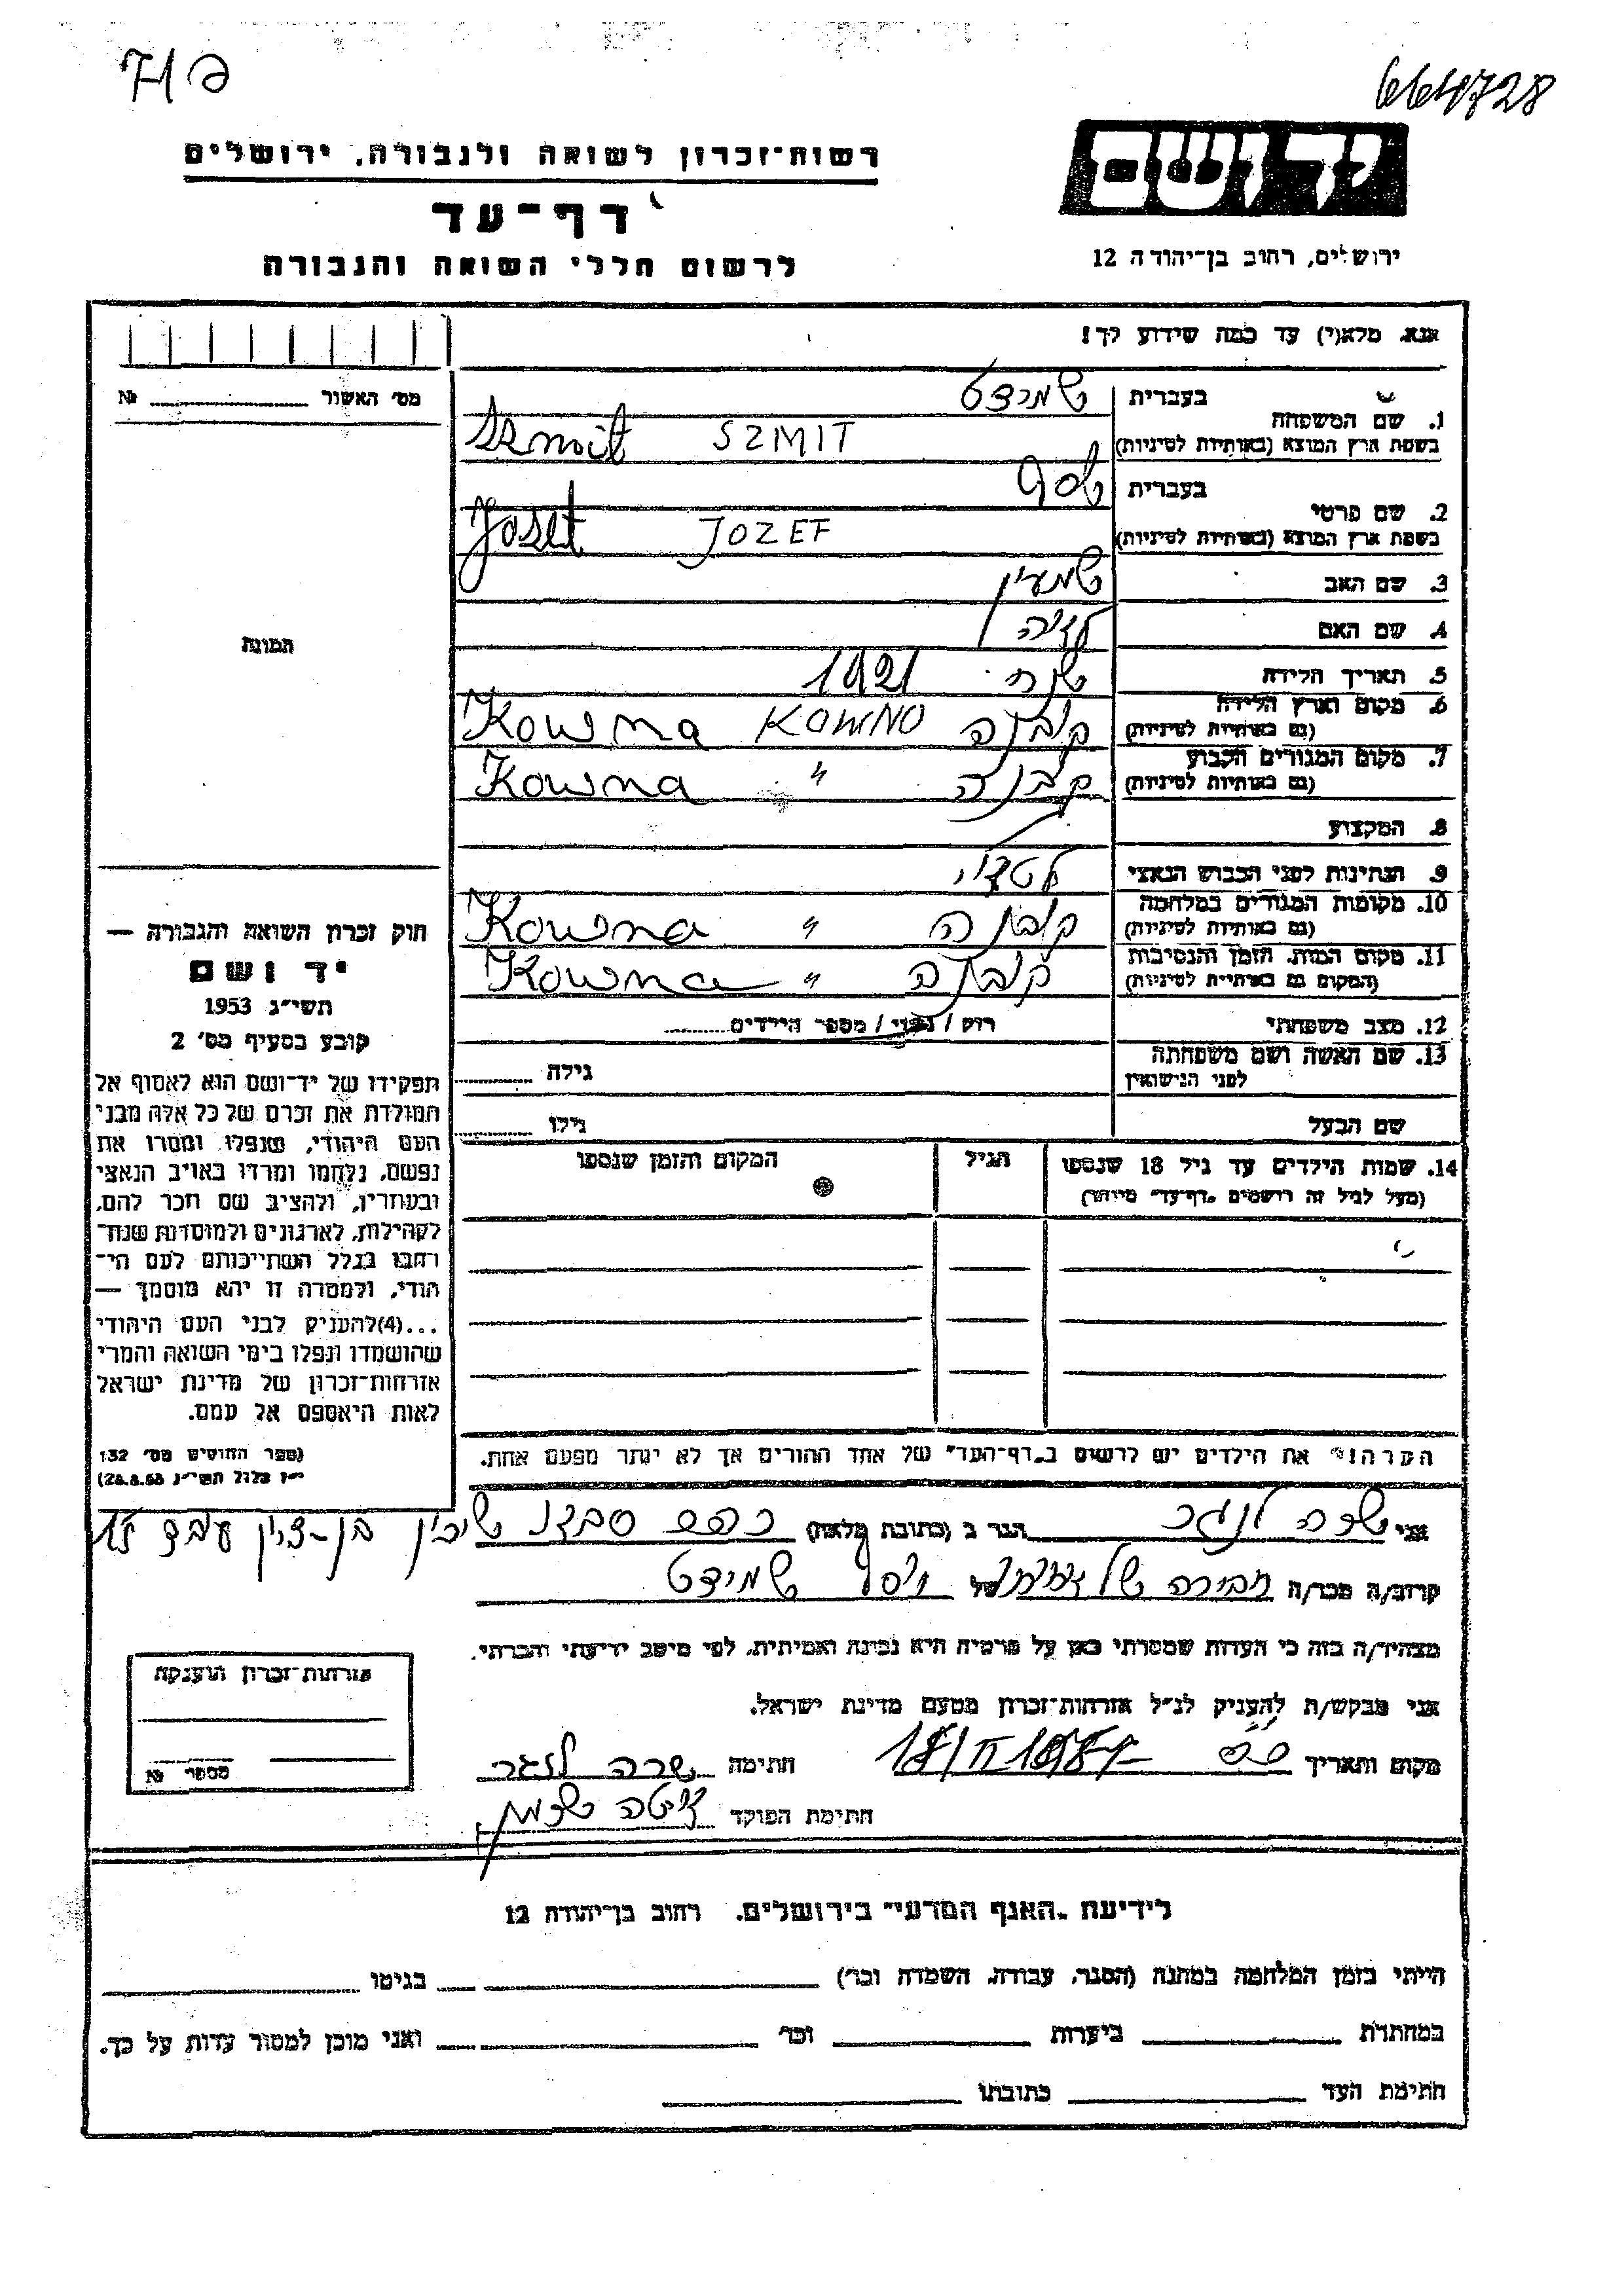 664728
רשות־זכרון לשואה ולגבורה, ירושלים
יד ושם
דף־עד
ירושלים, רחוב בן־יהודה 12
לרשום חללי השואה והגבורה
אנא, מלא(י) עד כמה שידוע לך!
מס׳ האשור № ........
1. שם המשפחה
בעברית שמידט
בשפת ארץ המוצא (באותיות לטיניות) Szmit SZMIT
2. שם פרטי
בעברית יוסף
בשפת ארץ המוצא (באותיות לטיניות) JOZEF
3. שם האב שמעון
4. שם האם
5. תאריך הלידה שנת 1921
6. מקום וארץ הלידה
(גם באותיות לטיניות) קובנה KOWNO Kowna
7. מקום המגורים הקבוע
(גם באותיות לטיניות) קובנה " Kowna
8. המקצוע
9. הנתינות לפני הכבוש הנאצי
10. מקומות המגורים במלחמה
(גם באותיות לטיניות) קובנה " Kowna
11. מקום המות, הזמן והנסיבות
(המקום גם באותיות לטיניות) קובנה " Kowna
12. מצב משפחתי רווק / נשוי / מספר הילדים ........
13. שם האשה ושם משפחתה
לפני הנישואין גילה ........
שם הבעל גילו ........
14. שמות הילדים עד גיל 18 שנספו הגיל המקום והזמן שנספו
(מעל לגיל זה רושמים „דף־עד" מיוחד)
הערה: את הילדים יש לרשום ב„דף־העד" של אחד ההורים אך לא יותר מפעם אחת.
תמונה
חוק זכרון השואה והגבורה —
יד ושם
תשי״ג 1953
קובע בסעיף מס׳ 2
תפקידו של יד־ושם הוא לאסוף אל
המולדת את זכרם של כל אלה מבני
העם היהודי, שנפלו ומסרו את
נפשם, נלחמו ומרדו באויב הנאצי
ובעוזריו, ולהציב שם וזכר להם,
לקהילות, לארגונים ולמוסדות שנח־
רבו בגלל השתייכותם לעם הי־
הודי, ולמטרה זו יהא מוסמך —
...(4) להעניק לבני העם היהודי
שהושמדו ונפלו בימי השואה והמרי
אזרחות־זכרון של מדינת ישראל
לאות היאספם אל עמם.
(ספר החוקים מס׳ 132
י״ז אלול תשי״ג 28.8.53)
אני שרה לנגר הגר ב (כתובת מלאה) כפר סבא שיכון בן-ציון
קרוב/ה מכר/ה חבירה של יוסף שמידט
מצהיר/ה בזה כי העדות שמסרתי כאן על פרטיה היא נכונה ואמיתית, לפי מיטב ידיעתי והכרתי.
אני מבקש/ת להעניק לנ״ל אזרחות־זכרון מטעם מדינת ישראל.
מקום ותאריך חתימה שרה לנגר
חתימת הפוקד
אזרחות־זכרון הוענקה
מספר №
לידיעת „האגף המדעי" בירושלים, רחוב בן־יהודה 12
הייתי בזמן המלחמה במחנה (הסגר, עבודה, השמדה וכו׳) בגיטו
במחתרת ביערות וכו׳ ואני מוכן למסור עדות על כך.
חתימת העד כתובתו